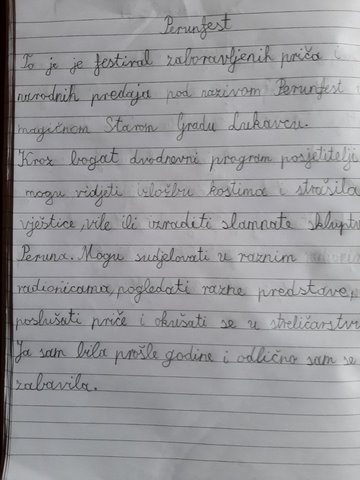 Perunfest
To je je festival zaboravljenih priča i
narodnih predaja pod nazivom Perunfest u
magičnom Starom Gradu Lukavcu.
Kroz bogat dvodnevni program posjetitelji
mogu vidjeti izložbu kostima i strašila
vještice, vile ili izraditi slamnate skulptu
Peruna. Mogu sudjelovati u raznim
radionicama, pogledati razne predstave,
poslušati priče i okušati se u streličarstvu
Ja sam bila prošle godine i odlično sam se
zabavila.